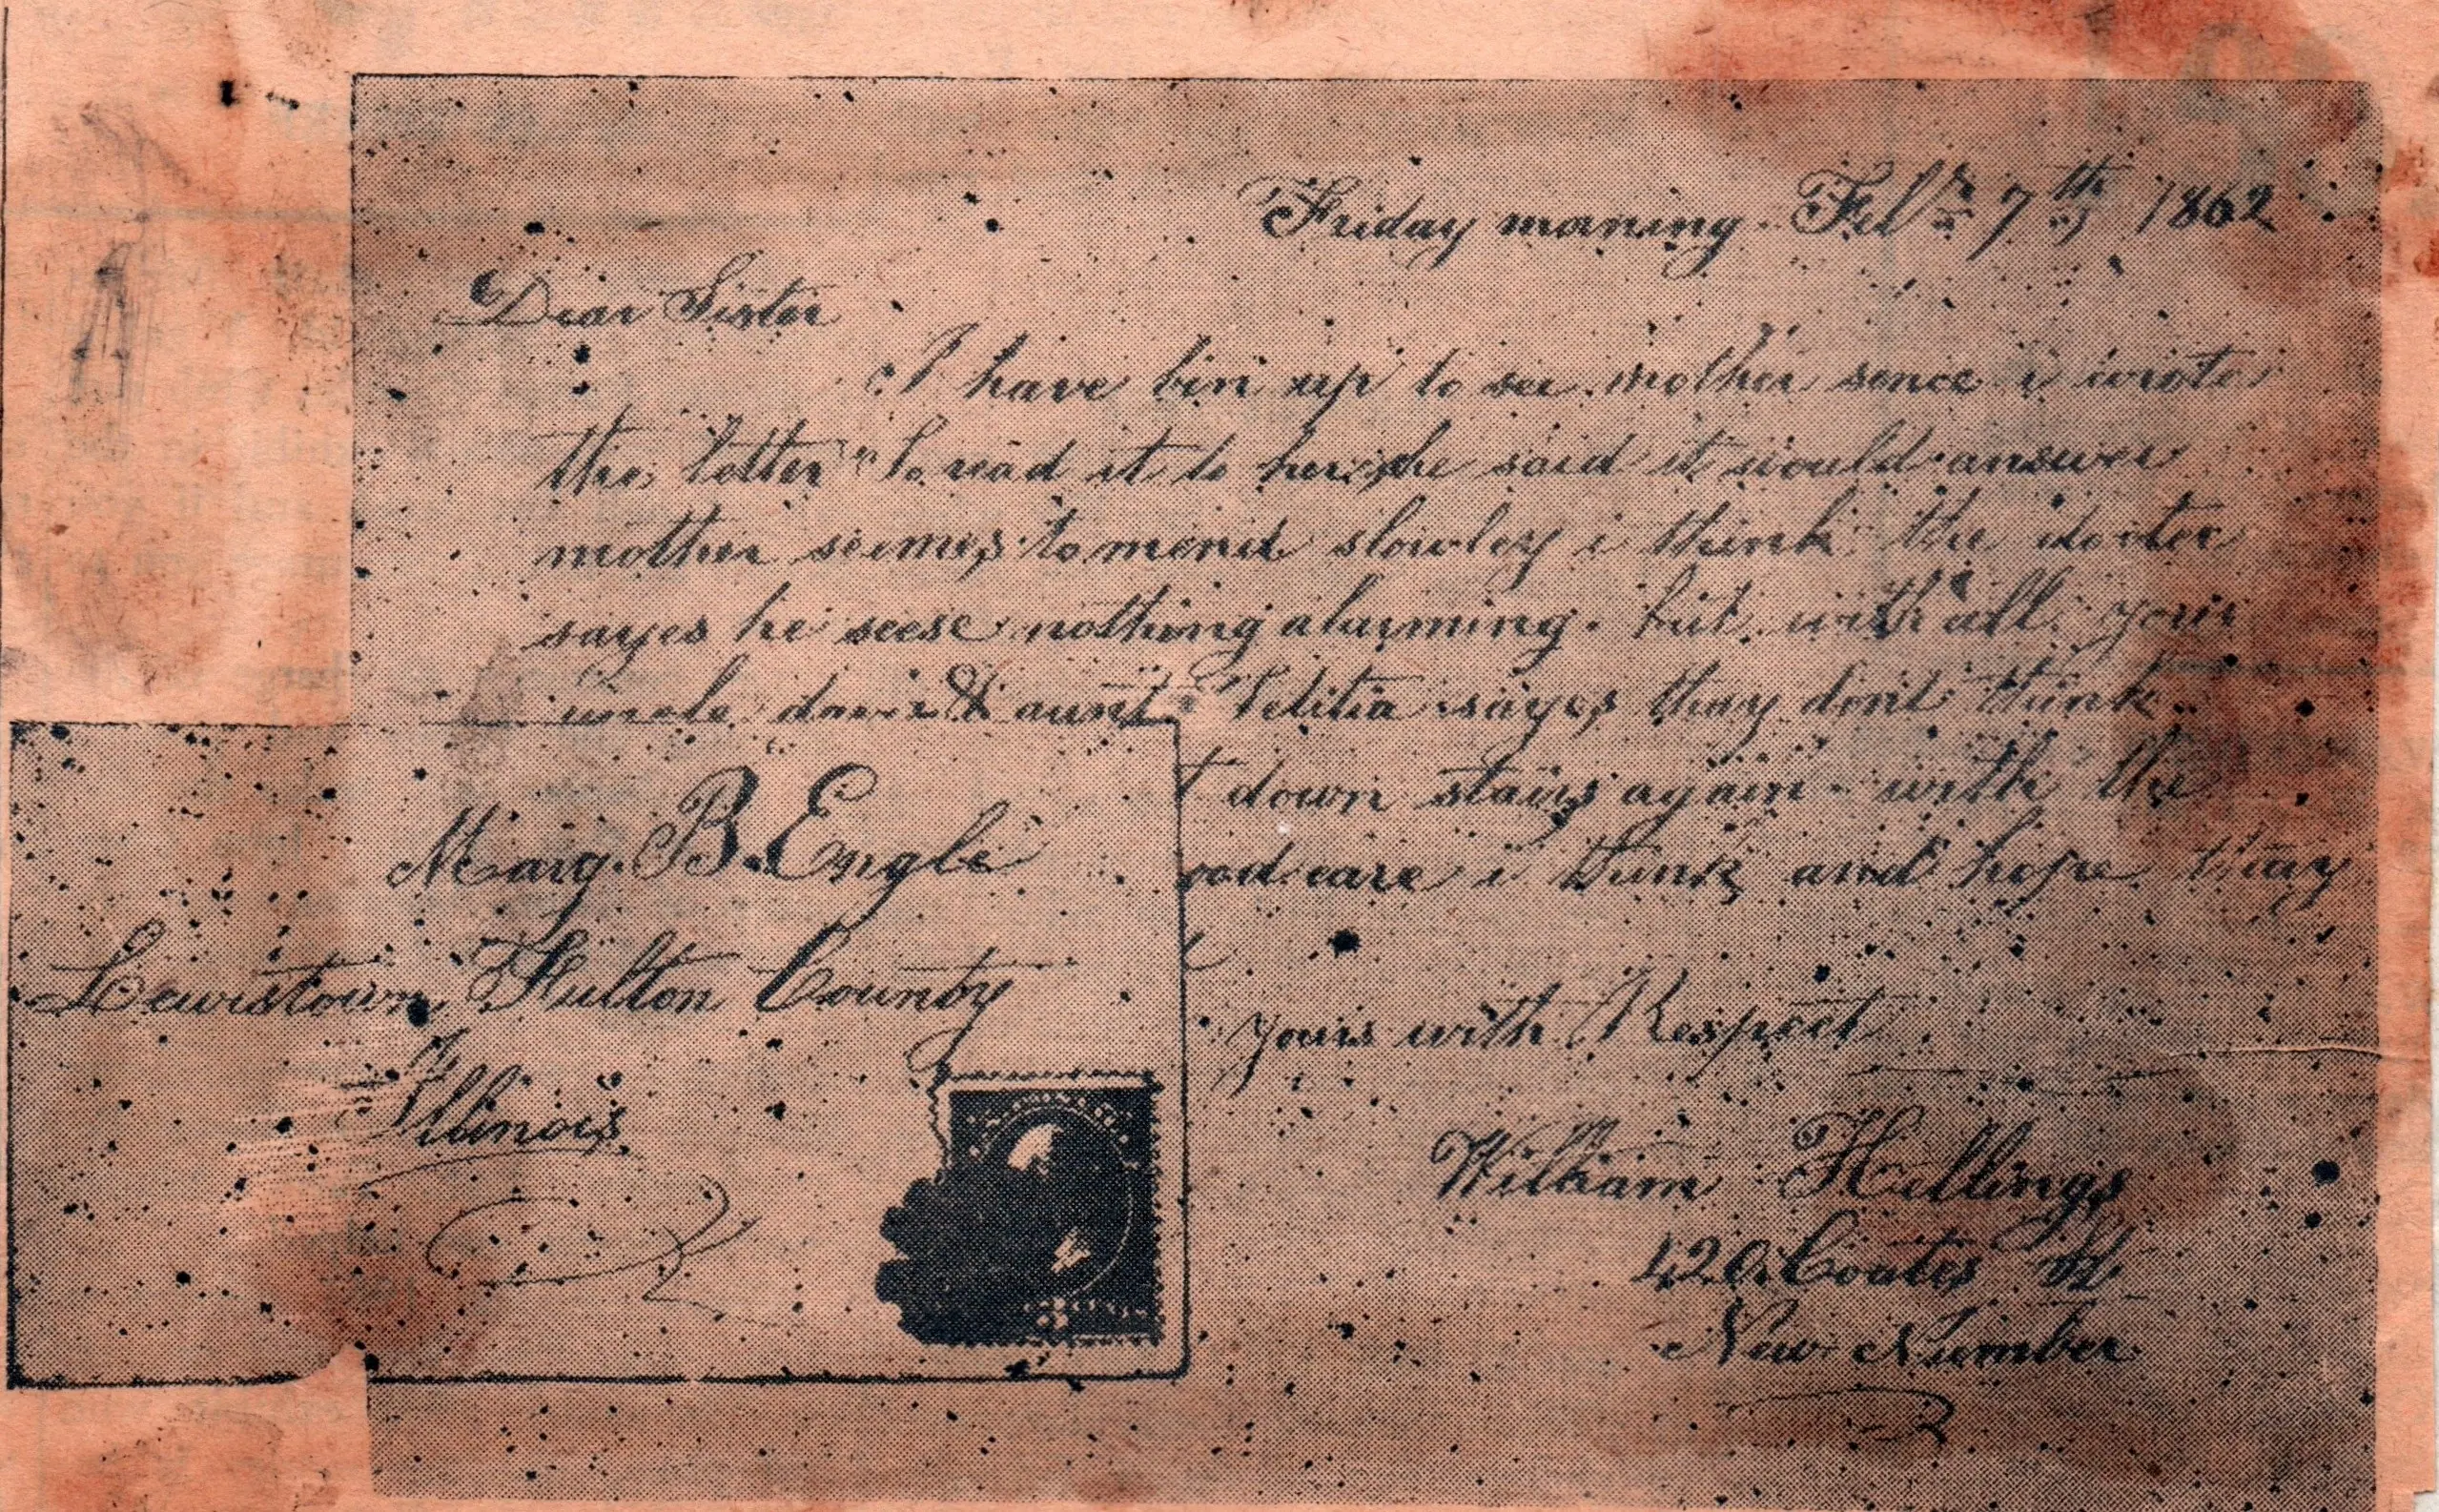 Friday morning Feb 7th 1862
Dear Sister
I have bin up to see mother sence i wrote
the letter to read it to her she said it would answer
mother seemes to mend slowley i think the docter
sayes he seese nothing alarming. but with all your
uncle & aunt Letitia sayes thay dont think
t down stairs again with the
ood care i think and hope thay
yours with Respect
William Hillings
420 Coates St
New Number
Mary. B. Engle
Lewistown Fulton County
Illinois
3 CENTS